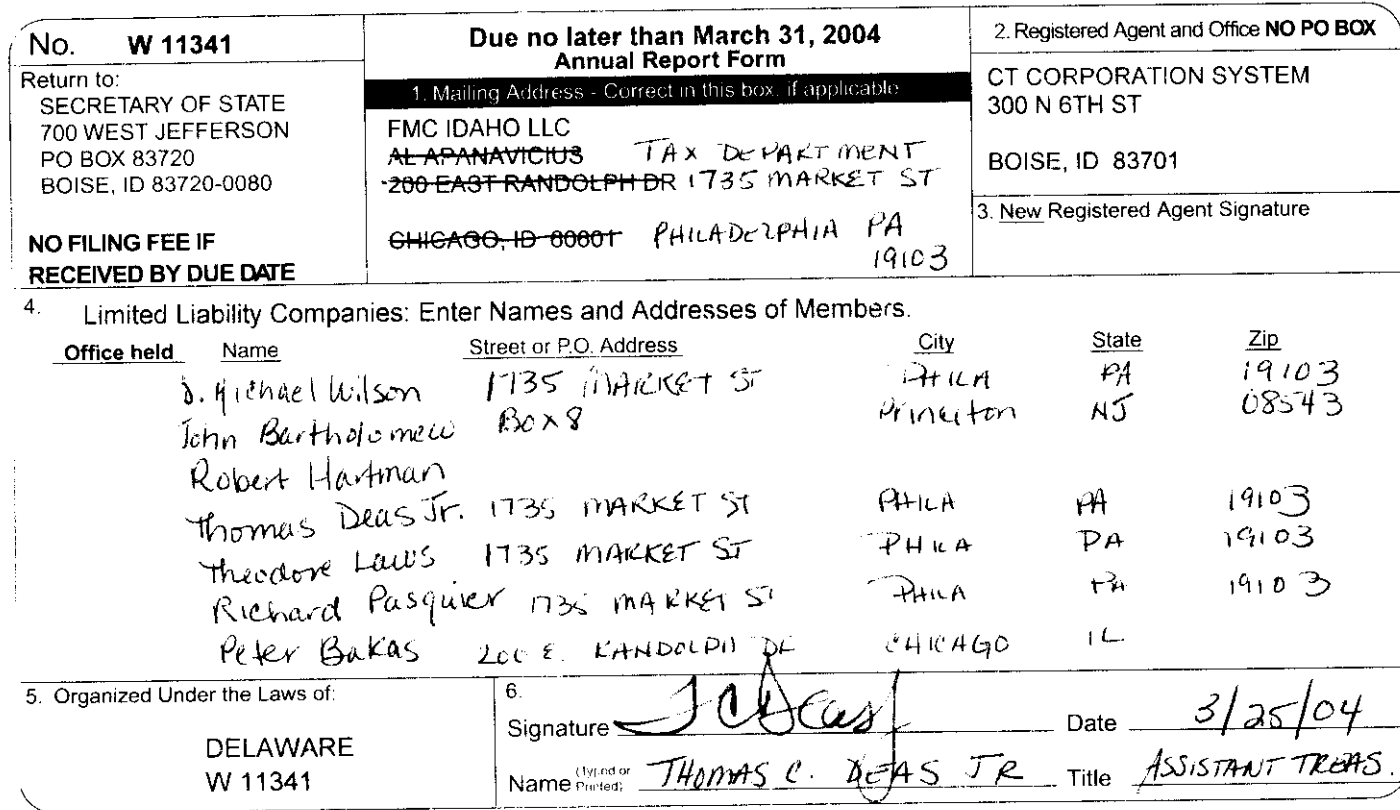 No. W 11341
Return to:
SECRETARY OF STATE
700 WEST JEFFERSON
PO BOX 83720
BOISE, ID 83720-0080
NO FILING FEE IF
RECEIVED BY DUE DATE
Due no later than March 31, 2004
Annual Report Form
1. Mailing Address - Correct in this box, if applicable
FMC IDAHO LLC
AL APANAVICIUS TAX DEPARTMENT
200 EAST RANDOLPH DR 1735 MARKET ST
CHICAGO, ID 60601 PHILADELPHIA PA
19103
2. Registered Agent and Office NO PO BOX
CT CORPORATION SYSTEM
300 N 6TH ST
BOISE, ID 83701
3. New Registered Agent Signature
4. Limited Liability Companies: Enter Names and Addresses of Members.
Office held Name Street or P.O. Address City State Zip
D. Michael Wilson 1735 MARKET ST PHILA PA 19103
John Bartholomew Box 8 Princeton NJ 08543
Robert Hartman
Thomas Deas Jr. 1735 MARKET ST PHILA PA 19103
Theodore Laws 1735 MARKET ST PHILA PA 19103
Richard Pasquier 1735 MARKET ST PHILA PA 19103
Peter Bakas 200 E. RANDOLPH DR CHICAGO IL
5. Organized Under the Laws of:
DELAWARE
W 11341
6.
Signature TC Deas Date 3/25/04
Name (Typed or Printed) THOMAS C. DEAS JR Title ASSISTANT TREAS.